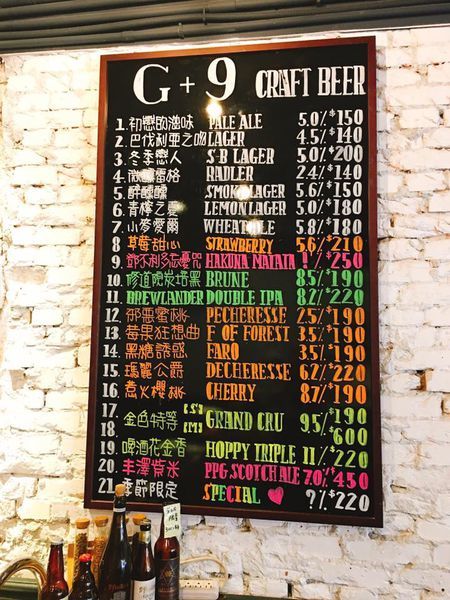 G + 9 CRAFT BEER
1. 初戀的滋味 PALE ALE 5.0% $150
2. 巴伐利亞之吻 LAGER 4.5% $140
3. 冬季戀人 S·B LAGER 5.0% $200
4. 微醺雷格 RADLER 2.4% $140
5. 醉醺醺 SMOK LAGER 5.6% $150
6. 青檸之夏 LEMON LAGER 5.0% $180
7. 小麥愛爾 WHEAT ALE 5.8% $180
8. 草莓甜心 STRAWBERRY 5.6% $210
9. HAKUNA MATATA ?% $250
10. 修道院炭焙黑 BRUNE 8.5% $190
11. BREWLANDER DOUBLE IPA 8.2% $220
12. 邪惡蜜桃 PECHERESSE 2.5% $190
13. 莓果狂想曲 F OF FOREST 3.5% $190
14. 黑糖誘惑 FARO 3.5% $190
15. 瑪麗公爵 DECHERESSE 6.2% $220
16. 煮火櫻桃 CHERRY 8.7% $190
17. [S] $190
金色特等 GRAND CRU 9.5%
18. [M] $600
19. 啤酒花金香 HOPPY TRIPLE 11% $220
20. 丰澤紫米 PPG SCOTCH ALE 7.0% $450
21. 季節限定 SPECIAL ?% $220